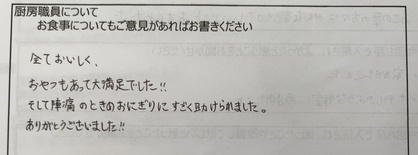 厨房職員について
お食事についてもご意見があればお書きください
全ておいしく、
おやつもあって大満足でした!!
そして陣痛のときのおにぎりにすごく助けられました。
ありがとうございました!!